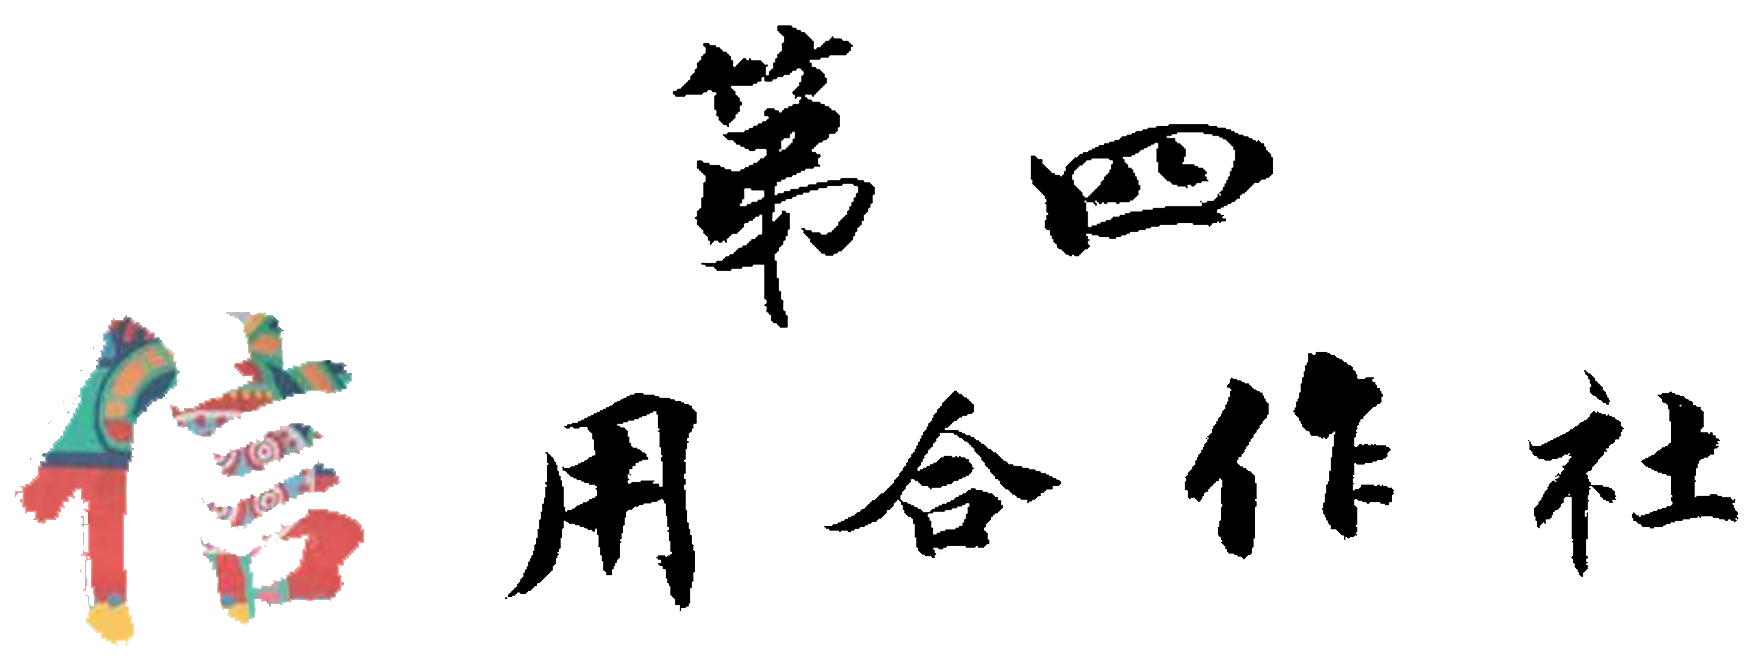 第四
信用合作社